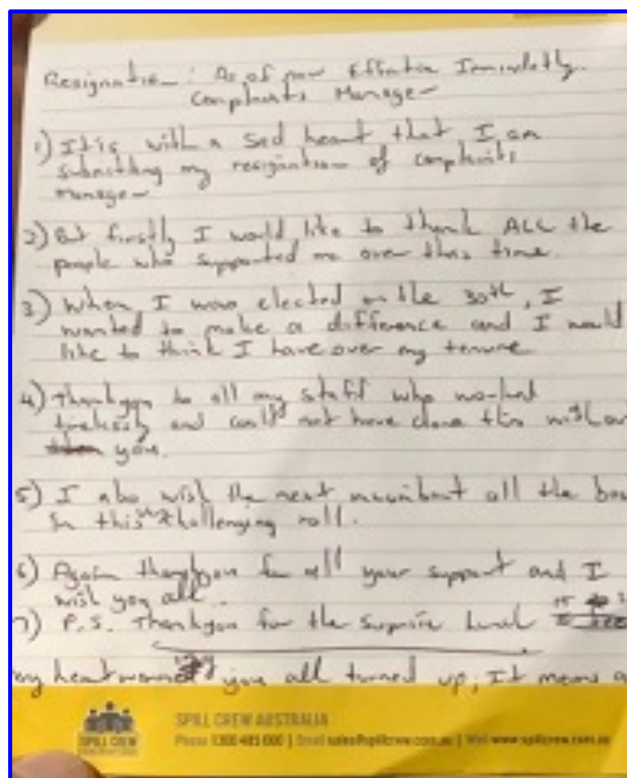 Resignation: As of now Effective Immidetly.
Complaints Manager
1) It is with a sad heart that I am
submitting my resignation of complaints
manager
2) But firstly I would like to thank ALL the
people who supported me over this time.
3) When I was elected on the 30th, I
wanted to make a difference and I would
like to think I have over my tenure
4) Thankyou to all my staff who worked
and could not have done this without
you.
5) I also wish the next all the
in this challenging roll.
6) Again thankyou for all your support and I
wish you all.
7) P.S. Thankyou for the surprise lunch
my heart you all turned up, It means a
SPILL CREW
SPILL CREW AUSTRALIA
Phone 1300 485 000 | Email sales@spillcrew.com.au | Web www.spillcrew.com.au